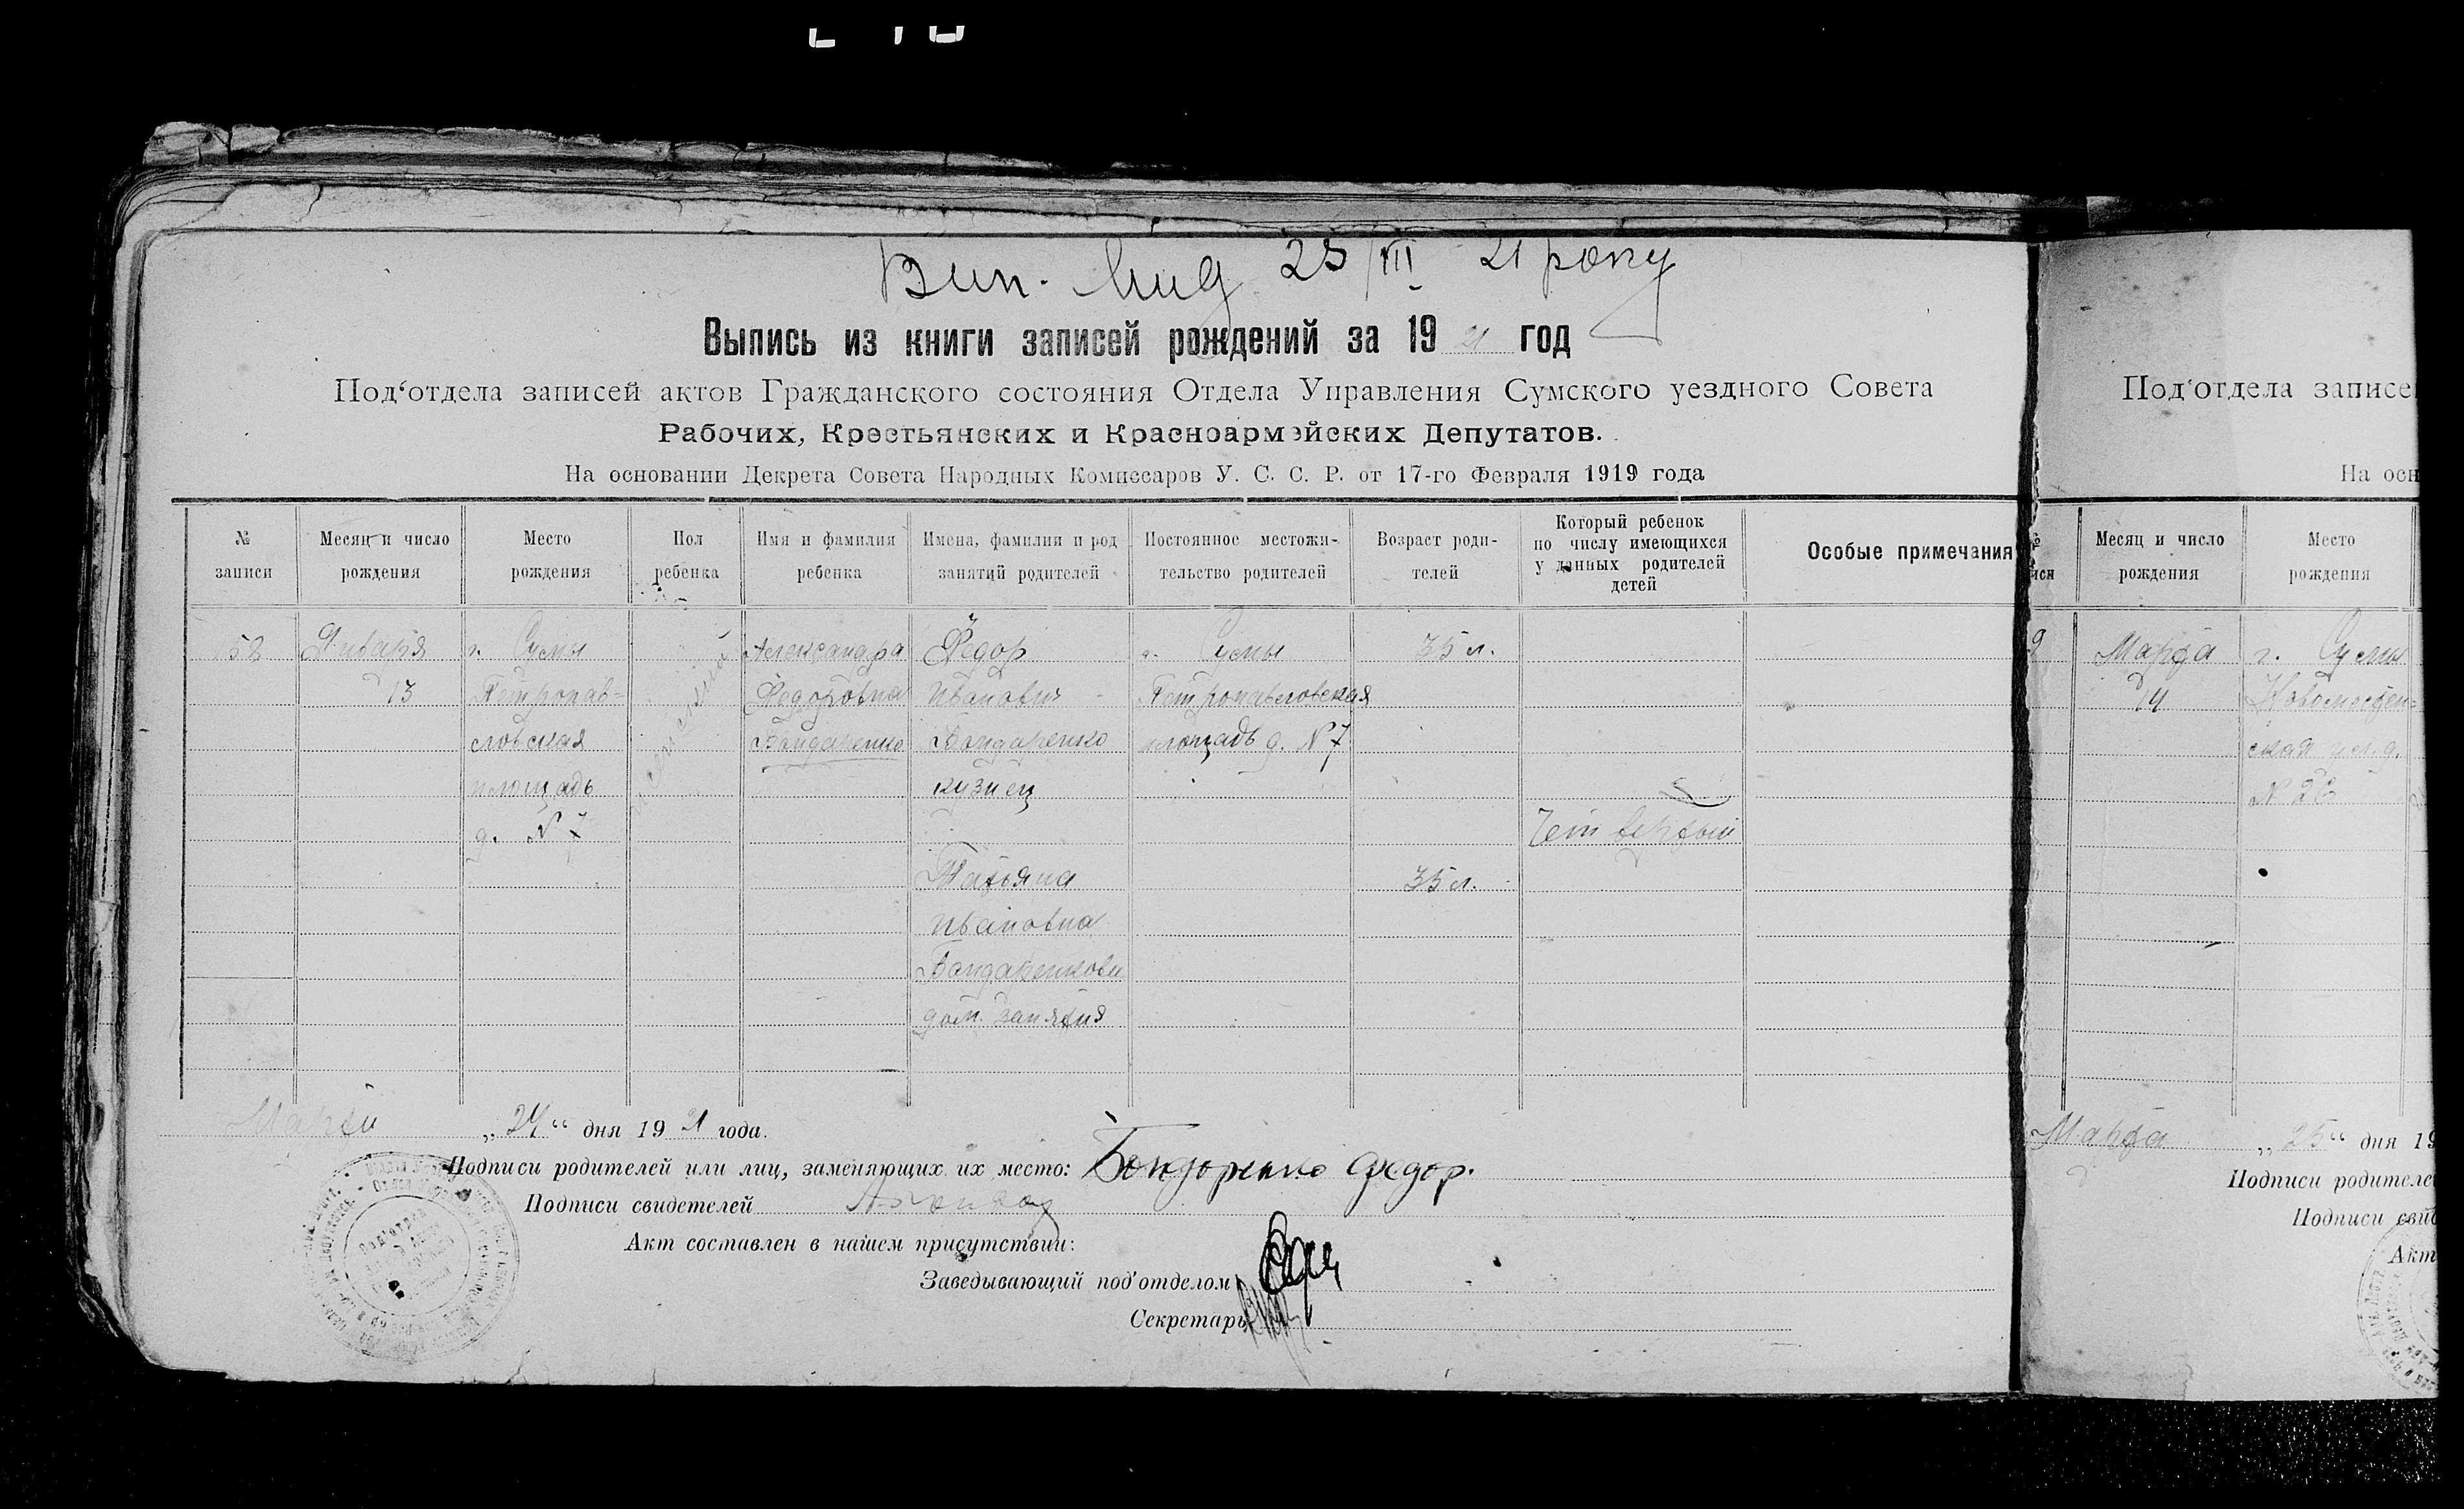 Вип. Вид 25/III 21 року
Выпись из книги записей рождений за 1921 год
Под‘отдела записей актов Гражданского состояния Отдела Управления Сумского уездного Совета
Рабочих, Крестьянских и Красноармейских Депутатов.
На основании Декрета Совета Народных Комиссаров У. С. С. Р. от 17-го Февраля 1919 года
№ записи
Месяц и число рождения
Место рождения
Пол ребенка
Имя и фамилия ребенка
Имена, фамилии и род занятий родителей
Постоянное местожи-
тельство родителей
Возраст роди-
телей
Который ребенок
по числу имеющихся
у данных родителей
детей
Особые примечания
58
Января
13
г. Сумы
Петропав=
ловская
площадь
д. № 7
Александра
Федоровна
Бондаренко
Федор
Иванович
Бондаренко
кузнец
Татьяна
Ивановна
дом. занятия
г. Сумы
Петропавловская
площадь д. № 7
35 л.
35 л.
Четвертый
Марта „24“ дня 1921 года.
Подписи родителей или лиц, заменяющих их место: Бондоренко Федор.
Подписи свидетелей
Акт составлен в нашем присутствии:
Заведывающий под‘отделом
Секретарь
Под‘отдела записе
На осн
Месяц и число
рождения
Место
рождения
9
Марта
14
г. Сумы
№ 28
Марта „25“ дня 19
Подписи родителе
Подписи свид
Акт